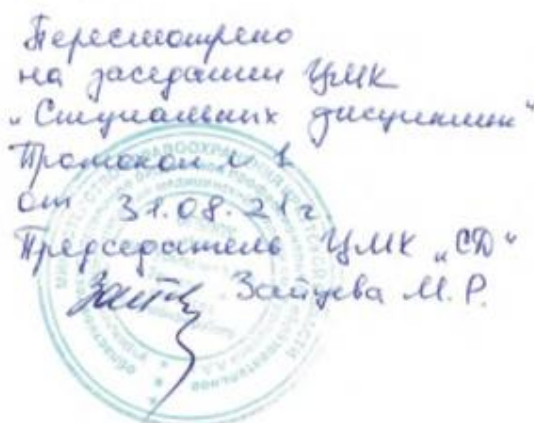 Пересмотрено
на заседании ЦМК
„Специальных дисциплин“
Протокол № 1
от 31.08.21г
Председатель ЦМК „СД“
Зайцева М.Р.